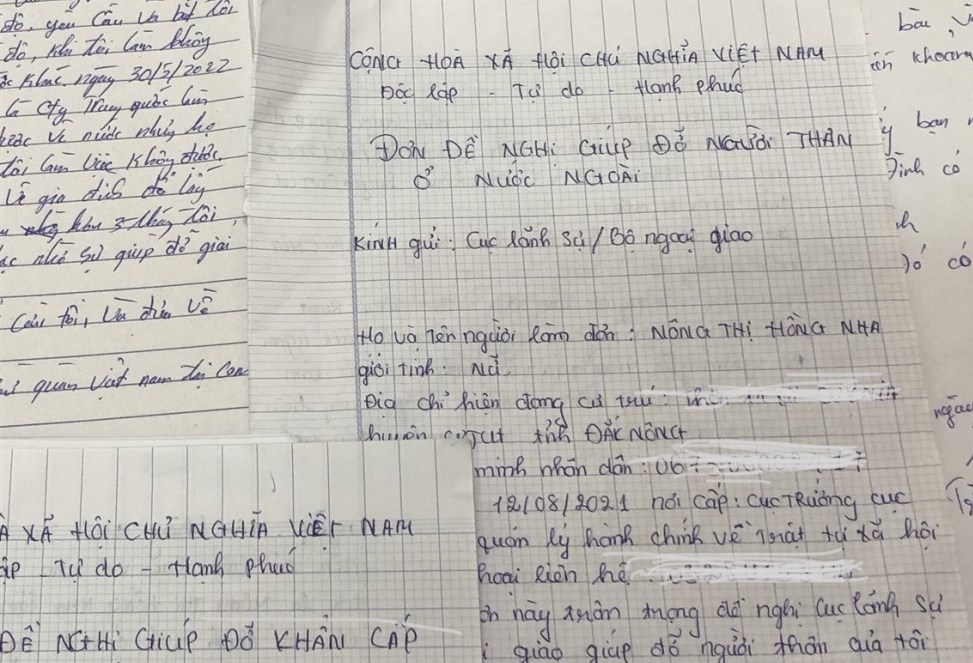 độ, yêu cầu và bắt tôi
độ, khi tôi làm không
khác. ngày 30/5/2022
là cty Trung quốc
về nước nhưng họ
tôi làm việc không được,
về gia đình để lấy
hơn 3 tháng tôi,
sự giúp đỡ giải
của tôi, và đưa về
quán việt nam tại Cam
CỘNG HOÀ XÃ HỘI CHỦ NGHĨA VIỆT NAM
Độc lập - Tự do - Hạnh phúc
ĐƠN ĐỀ NGHỊ GIÚP ĐỠ NGƯỜI THÂN
Ở NƯỚC NGOÀI
KÍNH gửi : Cục lãnh sự / Bộ ngoại giao
Họ và Tên người làm đơn : NÔNG THỊ HỒNG NHA
giới tính : Nữ.
Địa chỉ hiện đang cư trú :
huyện cưJut tỉnh ĐẮC NÔNG
minh nhân dân : 067
12/08/2021 nơi cấp : cục TRƯỞNG cục
quản lý hành chính về Trật tự xã hội
thoại liên hệ
này trân trọng đề nghị cục lãnh sự
giao giúp đỡ người thân của tôi
XÃ HỘI CHỦ NGHĨA VIỆT NAM
- Tự do - Hạnh phúc
ĐỀ NGHỊ GIÚP ĐỠ KHẨN CẤP
bài,
khoảng
ý bạn
Đình có
có
ngày